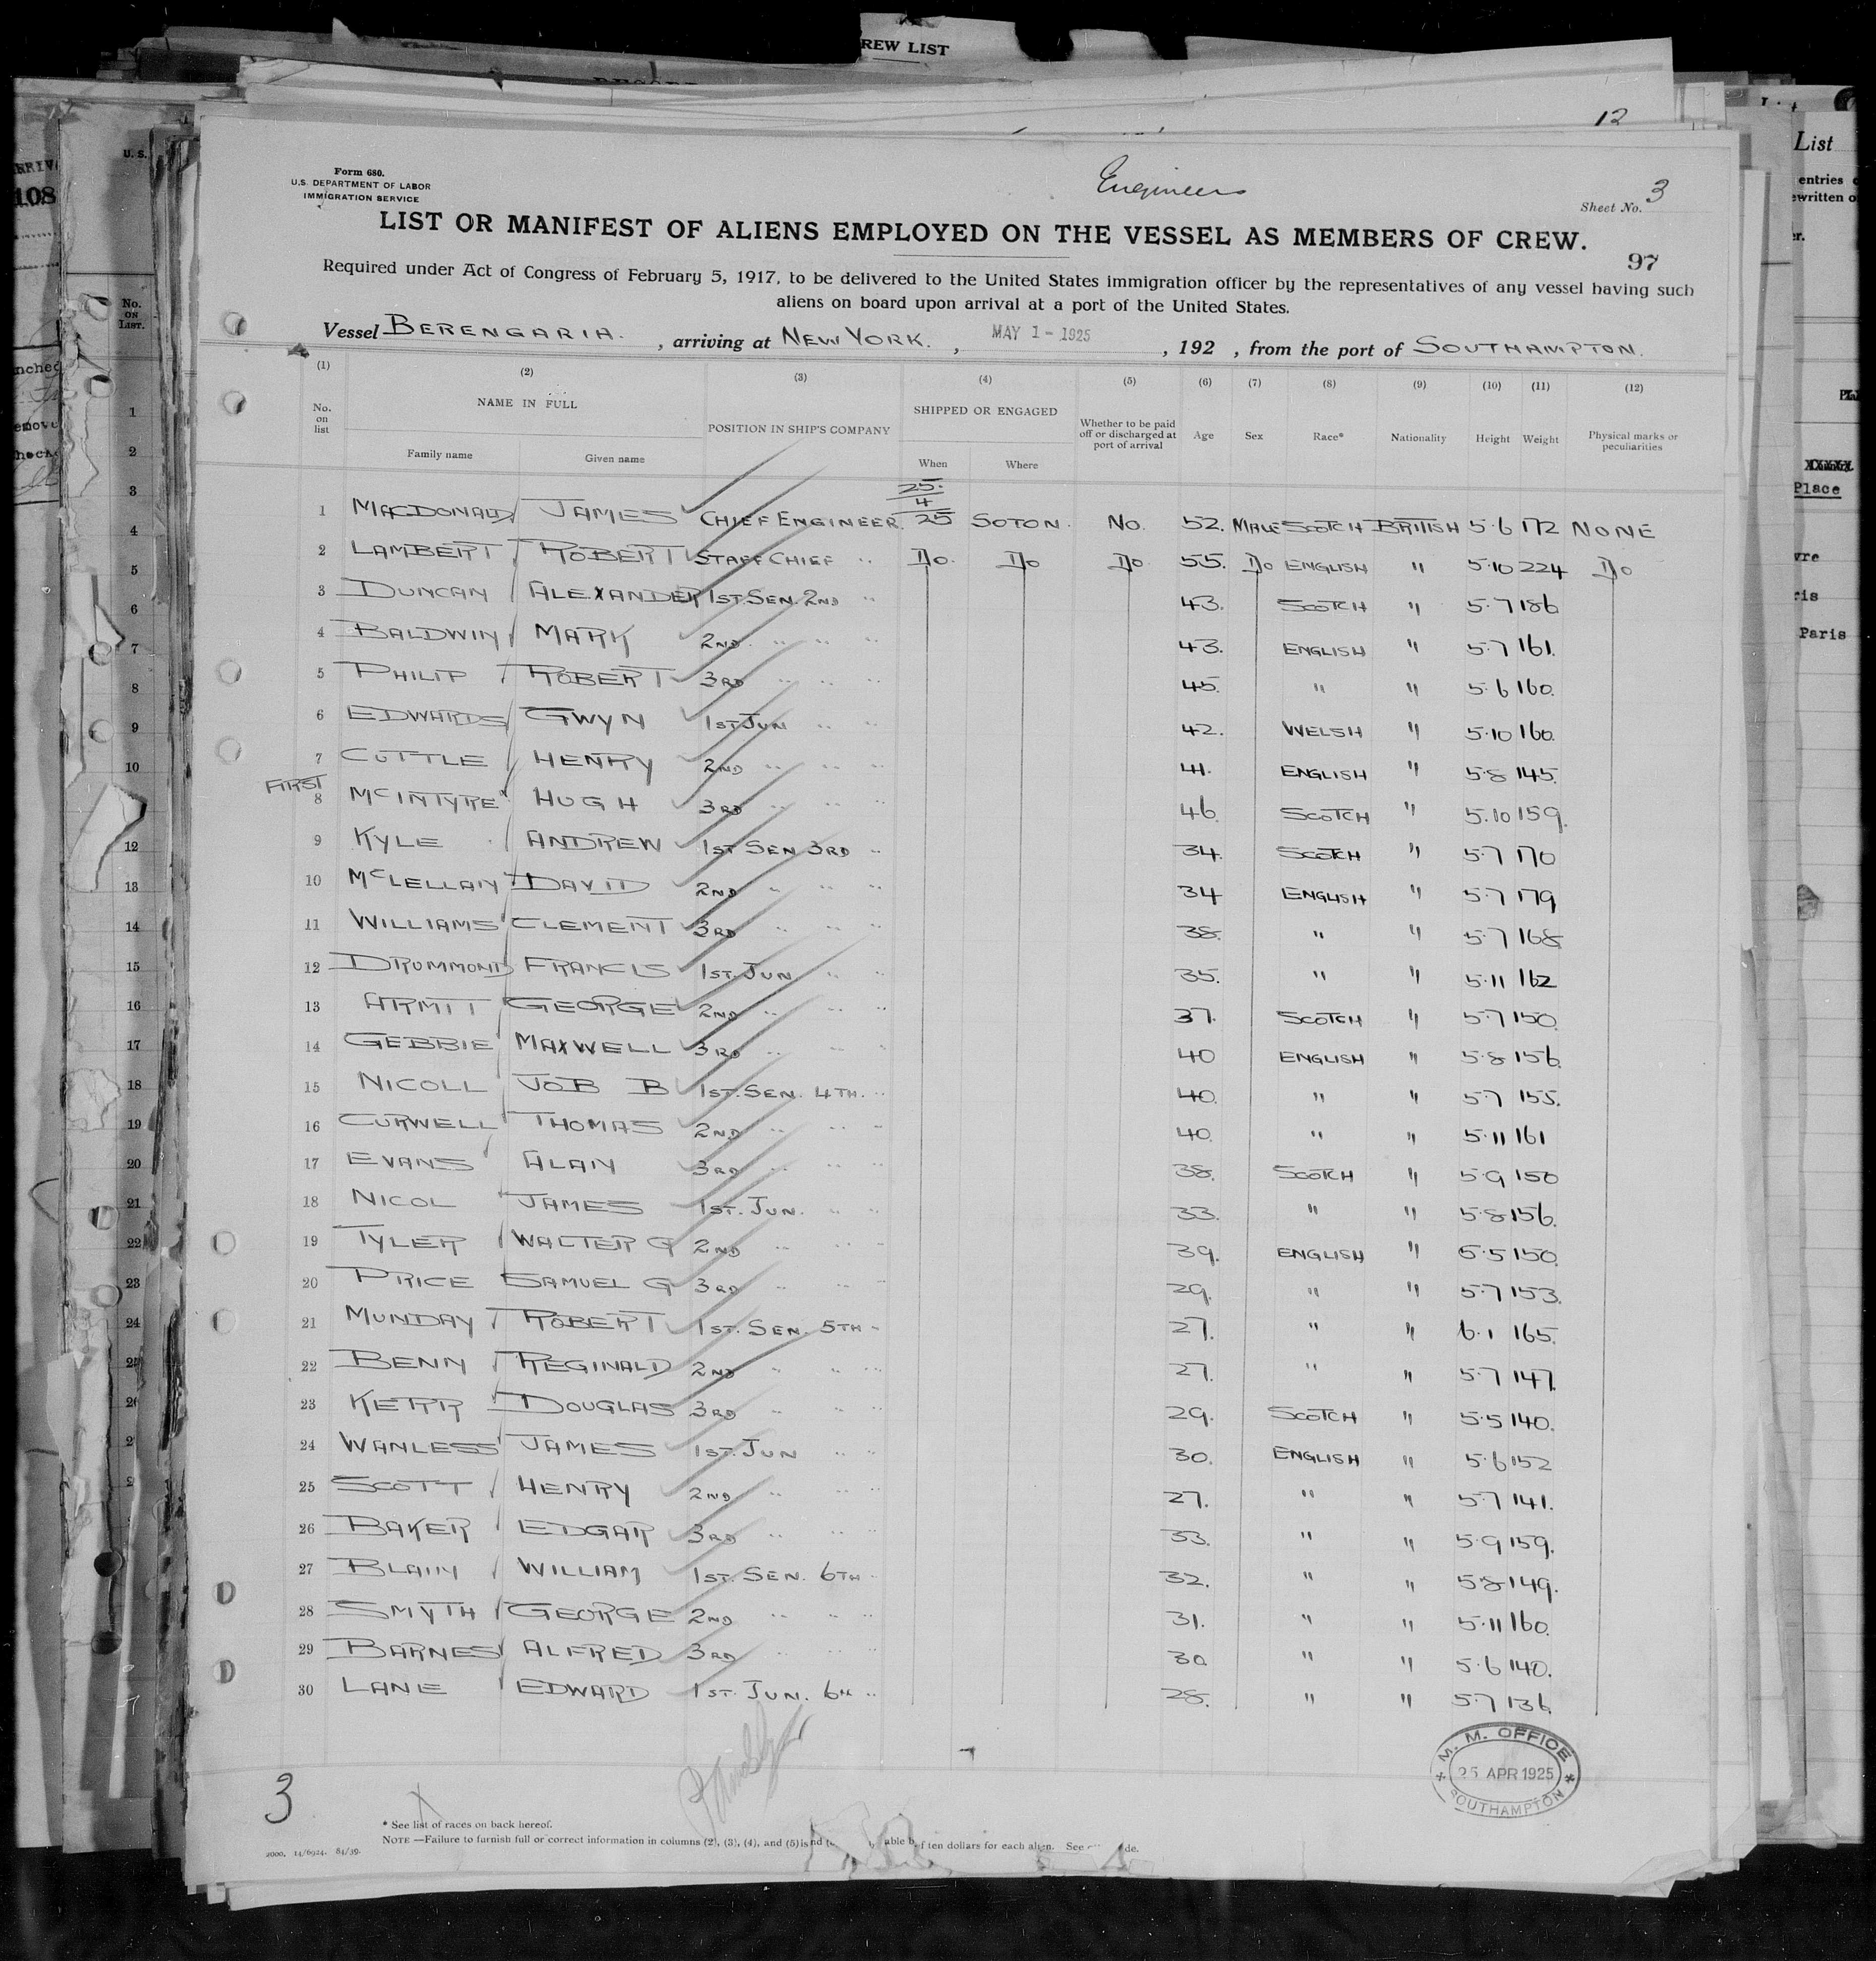 REW LIST
12
U. S.
108
List
entries
ewritten o
er.
Form 680.
U.S. DEPARTMENT OF LABOR
IMMIGRATION SERVICE
Engineers
Sheet No. 3
LIST OR MANIFEST OF ALIENS EMPLOYED ON THE VESSEL AS MEMBERS OF CREW.
97
Required under Act of Congress of February 5, 1917, to be delivered to the United States immigration officer by the representatives of any vessel having such
aliens on board upon arrival at a port of the United States.
Vessel BERENGARIA. , arriving at NEW YORK. , MAY 1 - 1925 , 192 , from the port of SOUTHAMPTON.
(1) (2) (3) (4) (5) (6) (7) (8) (9) (10) (11) (12)
No. on list NAME IN FULL POSITION IN SHIP'S COMPANY SHIPPED OR ENGAGED Whether to be paid off or discharged at port of arrival Age Sex Race* Nationality Height Weight Physical marks or peculiarities
Family name Given name When Where
1 MACDONALD JAMES CHIEF ENGINEER. 25/4 25 SOTON. No. 52. MALE SCOTCH BRITISH 5·6 172 NONE
2 LAMBERT ROBERT STAFF CHIEF " Do. Do Do 55. Do ENGLISH " 5·10 224 Do
3 DUNCAN ALEXANDER 1ST SEN 2ND " 43. SCOTCH " 5·7 186
4 BALDWIN MARK 2ND " " " 43. ENGLISH " 5·7 161.
5 PHILIP ROBERT 3RD " " " 45. " " 5·6 160.
6 EDWARDS GWYN 1ST JUN " " 42. WELSH " 5·10 160.
7 COTTLE HENRY 2ND " " " 41. ENGLISH " 5·8 145.
FIRST
8 McINTYRE HUGH 3RD " " " 46. SCOTCH " 5.10 159.
9 KYLE ANDREW 1ST SEN 3RD " 34. SCOTCH " 5·7 170
10 McLELLAN DAVID 2ND " " " 34 ENGLISH " 5·7 179
11 WILLIAMS CLEMENT 3RD " " " 38. " " 5·7 168
12 DRUMMOND FRANCIS 1ST. JUN " " 35. " " 5·11 162
13 ARMIT GEORGE 2ND " " " 37. SCOTCH " 5·7 150.
14 GEBBIE MAXWELL 3RD " " " 40 ENGLISH " 5·8 156.
15 NICOLL JOB B 1ST. SEN. 4TH. " 40. " " 5·7 155.
16 CURWELL THOMAS 2ND " " " 40. " " 5·11 161
17 EVANS ALAN 3RD " " " 38. SCOTCH " 5·9 150
18 NICOL JAMES 1ST. JUN. " " 33. " " 5·8 156.
19 TYLER WALTER G 2ND " " " 39. ENGLISH " 5·5 150.
20 PRICE SAMUEL G 3RD " " " 29. " " 5·7 153.
21 MUNDAY ROBERT 1ST. SEN. 5TH " 27. " " 6·1 165.
22 BENN REGINALD 2ND " " " 27. " " 5·7 147.
23 KERR DOUGLAS 3RD " " " 29. SCOTCH " 5·5 140.
24 WANLESS JAMES 1ST. JUN " " 30. ENGLISH " 5·6 152
25 SCOTT HENRY 2ND " " " 27. " " 5·7 141.
26 BAKER EDGAR 3RD " " " 33. " " 5·9 159.
27 BLAIN WILLIAM 1ST. SEN. 6TH " 32. " " 5·8 149.
28 SMYTH GEORGE 2ND " " " 31. " " 5·11 160.
29 BARNES ALFRED 3RD " " " 30 " " 5·6 140.
30 LANE EDWARD 1ST. JUN. 6TH " 28. " " 5·7 136.
M. M. OFFICE
25 APR 1925
SOUTHAMPTON
3
* See list of races on back hereof.
NOTE —Failure to furnish full or correct information in columns (2), (3), (4), and (5) is able of ten dollars for each alien. See
2000. 14/6924. 84/39.
No. ON LIST.
Place
Paris